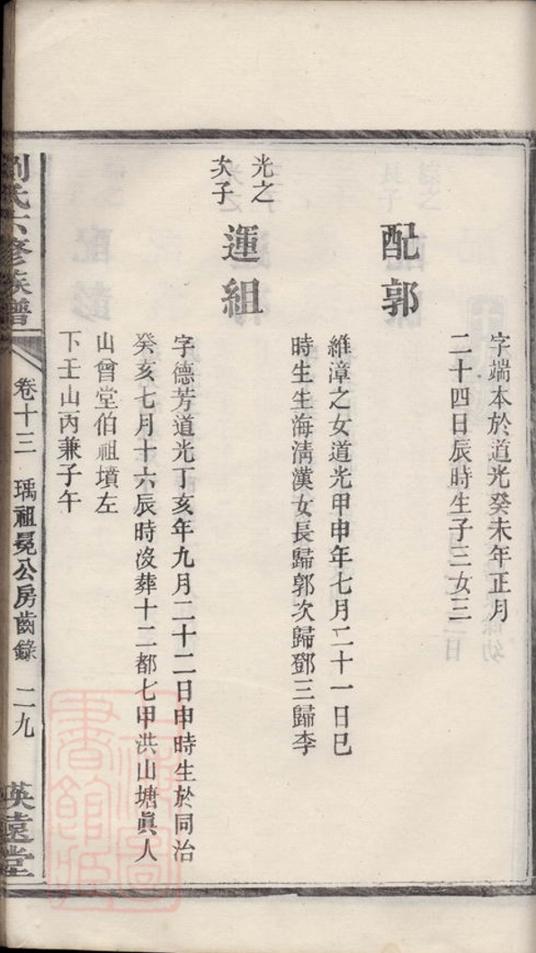 字端本於道光癸未年正月
二十四日辰時生子三女三
配郭
維漳之女道光甲申年七月二十一日巳
時生生海淸漢女長歸郭次歸鄧三歸李
光之
次子
運組
字德芳道光丁亥年九月二十二日申時生於同治
癸亥七月十六辰時沒葬十二都七甲洪山塘眞人
山曾堂伯祖墳左
下壬山丙兼子午
劉氏六修族譜
卷十三
瑀祖冕公房齒錄
二九
瑛遠堂